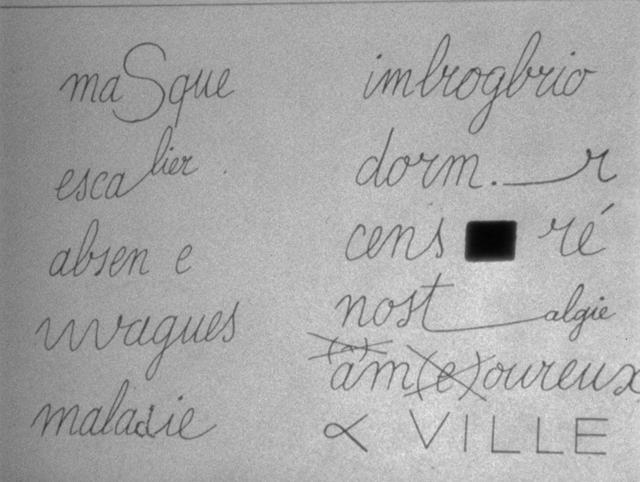 maSque
escalier
absen e
vvvagues
maladie
imbrogbrio
dorm. r
cens ■ ré
nost algie
(a) am(e)oureux
α VILLE